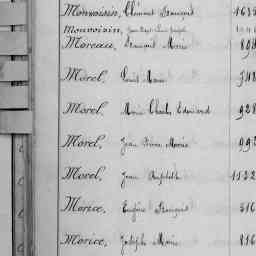 Monvoisin, Clément François 1639
Monvoisin, Jean Bapt. Louis Joseph
Moreau, François Marie
Morel, Louis Marie
Morel, Marie Charles Edouard 928
Morel, Jean Pierre Marie 992
Morel, Jean 1122
Morice, Eugène François 316
Morice, Joseph Marie 816